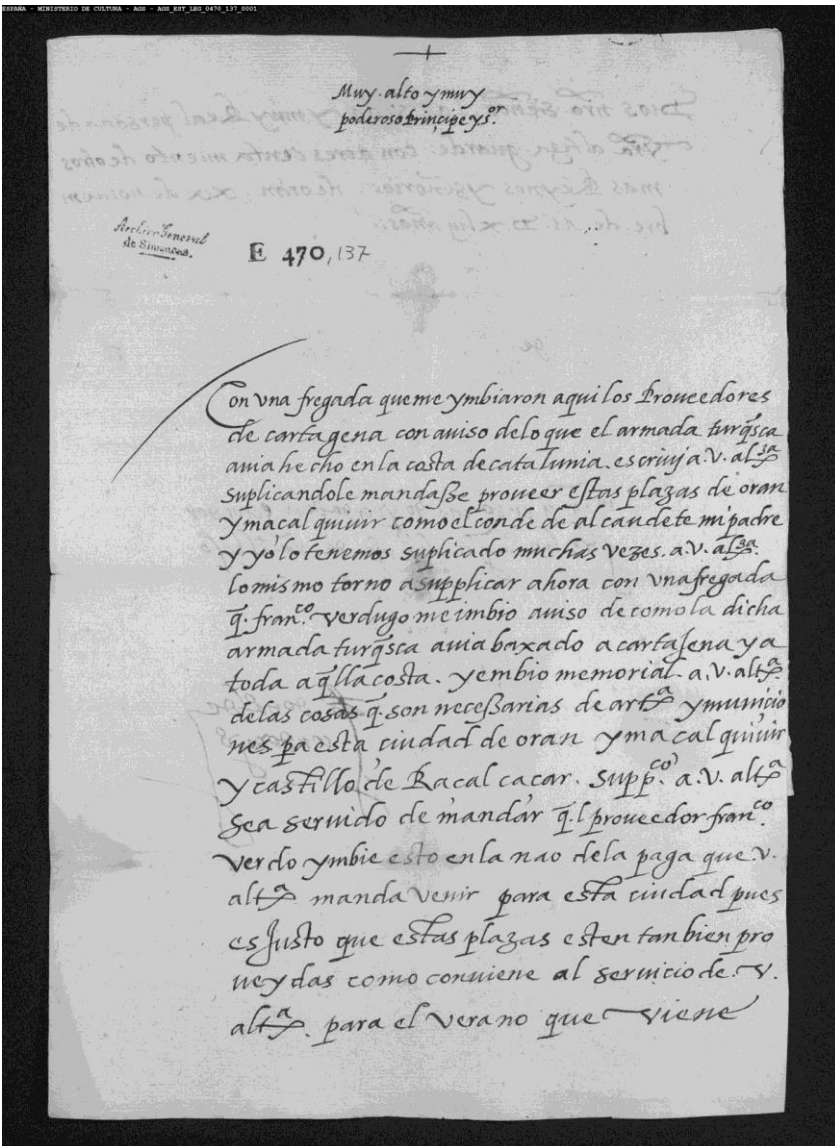 ESPAÑA - MINISTERIO DE CULTURA - AGS - AGS_EST_LEG_0470_137_0001
Muy alto y muy
poderoso Principe y s.or
Archivo General
de Simancas.
E 470,137
Con vna fregada que me ymbiaron aqui los Proueedores
de cartagena con auiso de lo que el armada turq̃sca
auia hecho en la costa de catalunia. escriuj a. V. alza
suplicandole mandasse proueer estas plazas de oran
y macal quiuir como el conde de alcaudete mi padre
y yo lo tenemos suplicado muchas vezes. a. v. alza.
lo mismo torno a supplicar ahora con vna fregada
q̃. fran.co verdugo me imbio auiso de como la dicha
armada turq̃sca auia baxado a cartajena y a
toda aq̃lla costa. y embio memorial. a. V. alta.
de las cosas q̃. son necessarias de arta y municio
nes pa esta ciudad de oran y macal quiuir
y castillo de Racal cacar. supp.co a. V. alta
sea seruido de mandar q̃.l proueedor fran.co
Verdo ymbie esto en la nao de la paga que. v.
alta manda venir para esta ciudad pues
es Justo que estas plazas esten tan bien pro
ueydas como conuiene al seruicio de. V.
alta. para el verano que viene